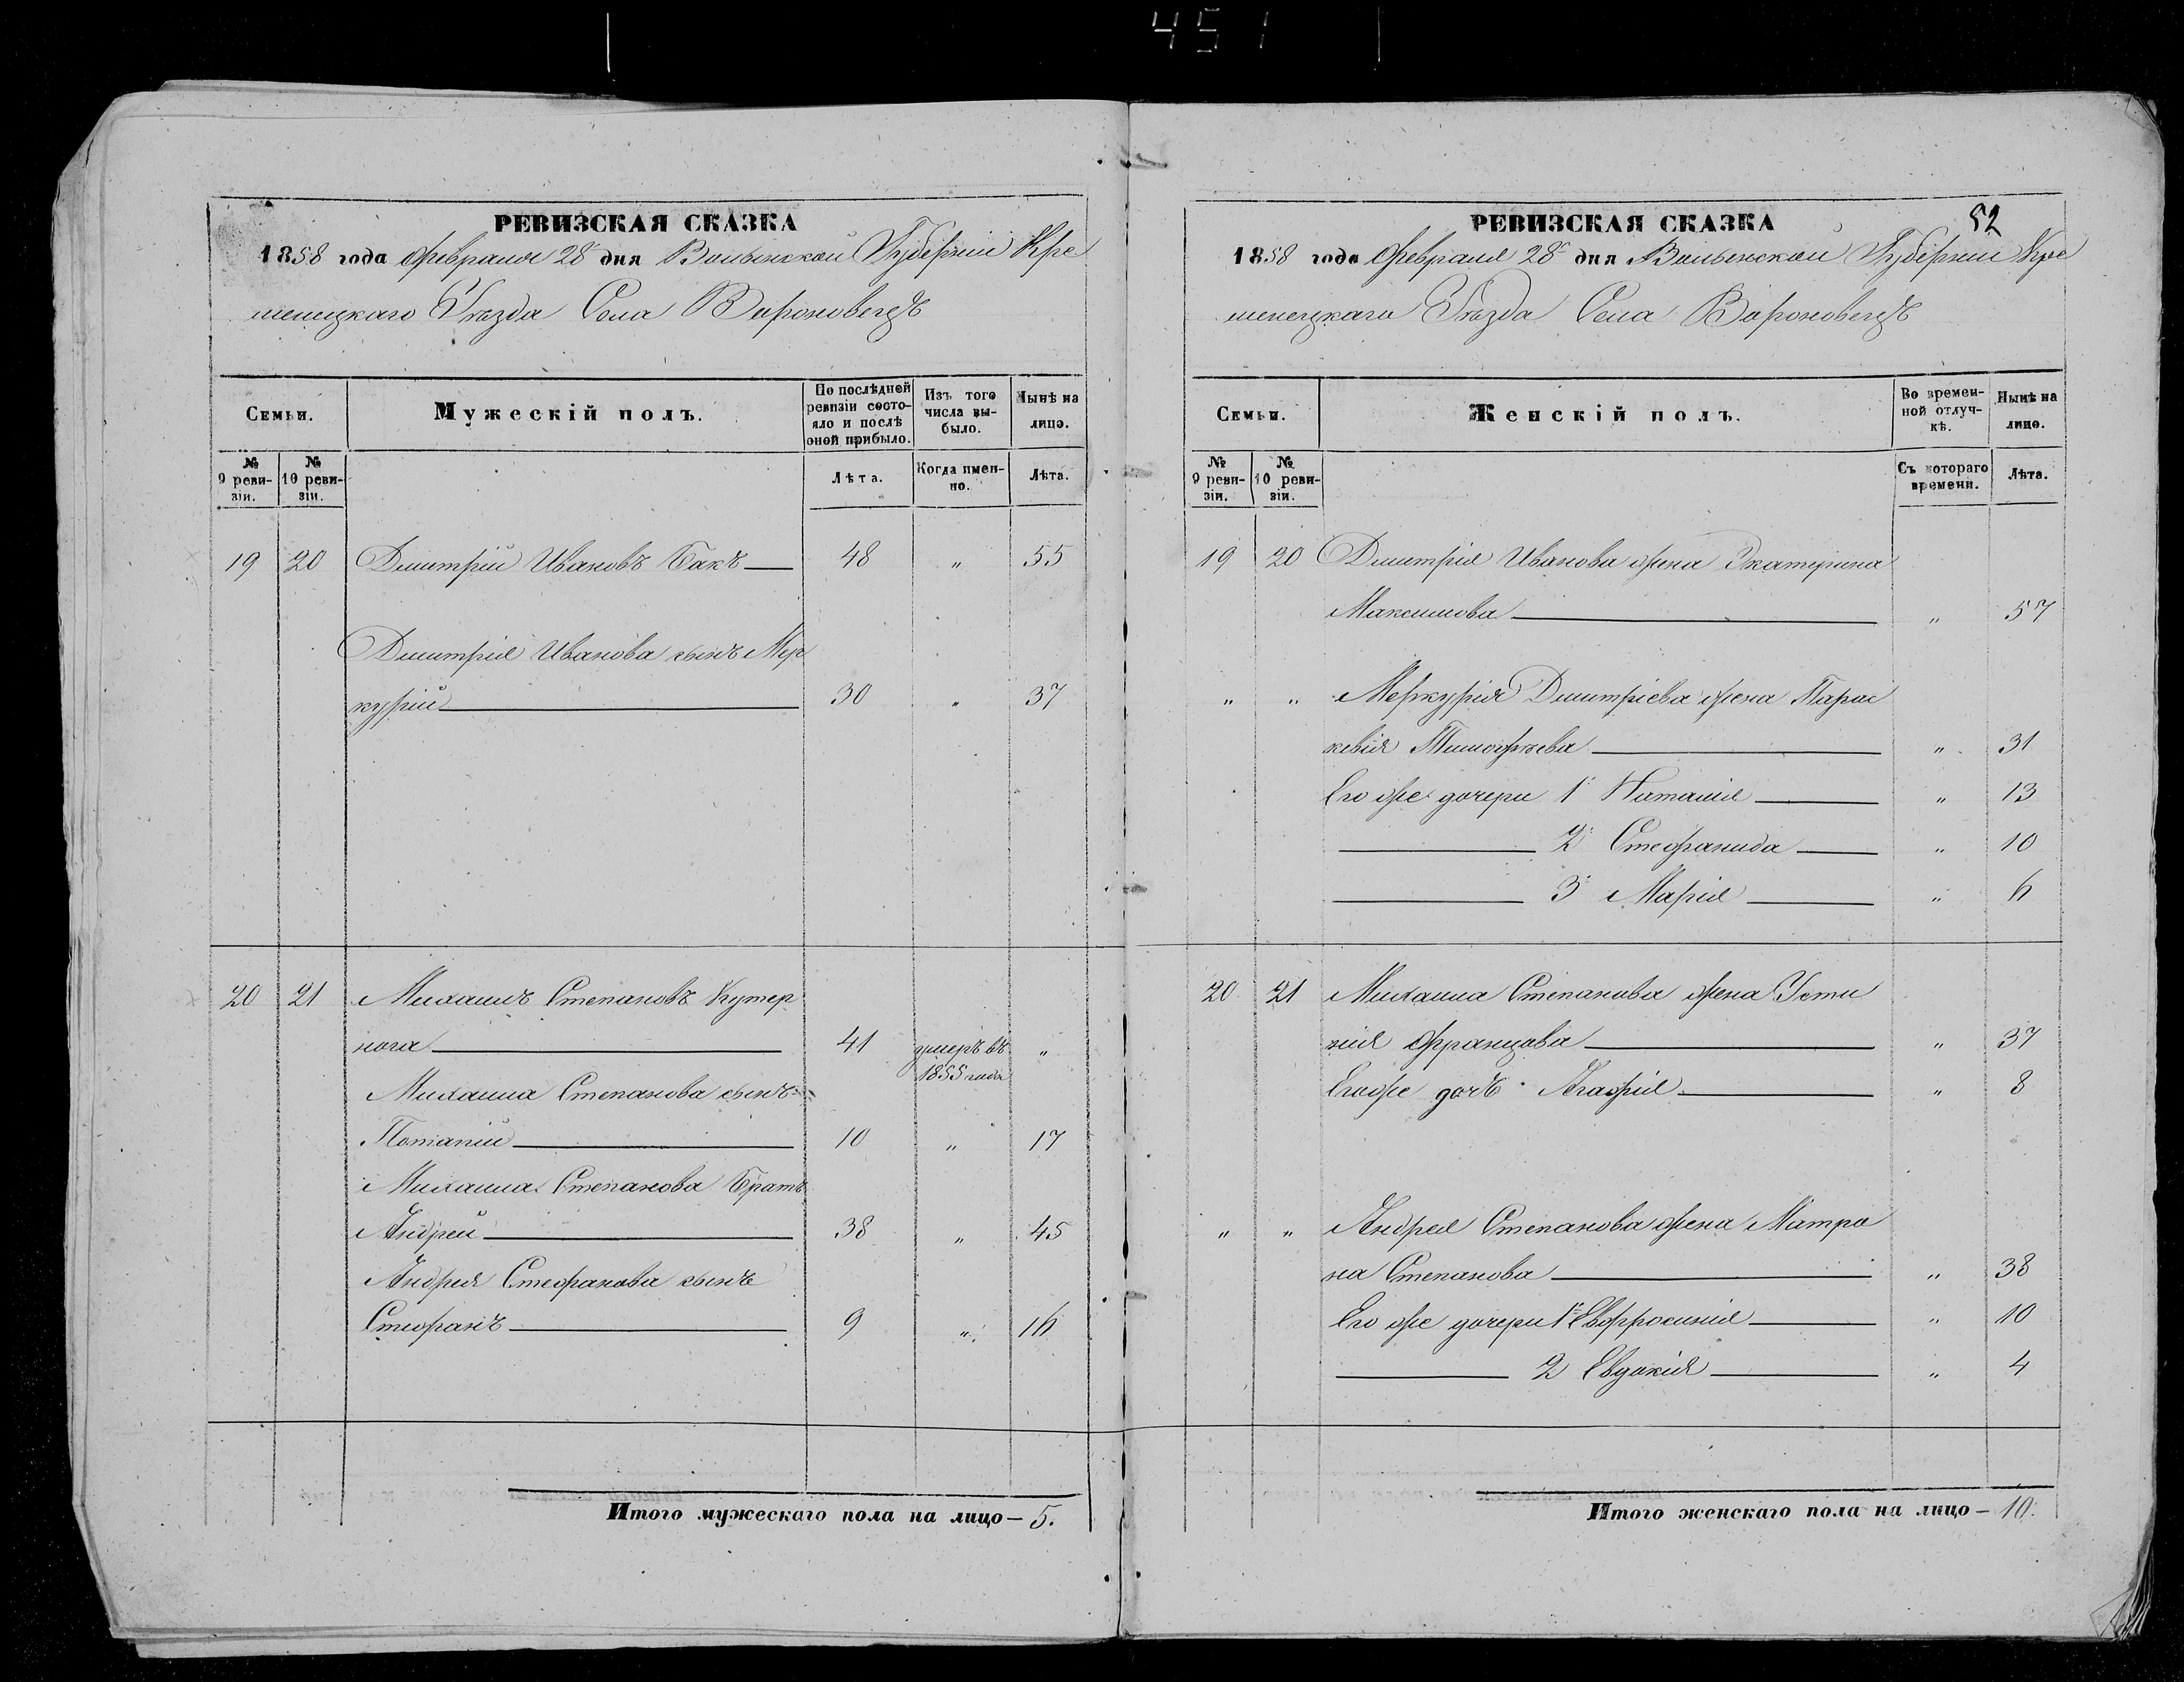 451
РЕВИЗСКАЯ СКАЗКА
1858 года Февраля 28 дня Волынской Губерніи Кре
менецкаго Уѣзда Села Вороновецъ
Семьи.
Мужескій полъ.
По послѣдней ревизіи состояло и послѣ оной прибыло.
Изъ того числа выбыло.
Нынѣ на лицо.
№ 9 ревизіи.
№ 10 ревизіи.
Лѣта.
Когда именно.
Лѣта.
19 20 Дмитрій Ивановъ Бакъ — 48 „ 55
Дмитрія Иванова сынъ Мер
курій — 30 „ 37
20 21 Михаилъ Степановъ Кутер
нога — 41 умеръ въ „
1855 года
Михаила Степанова сынъ
Потапій — 10 „ 17
Михаила Степанова Братъ
Андрей — 38 „ 45
Андрея Стефанова сынъ
Стефанъ — 9 „ 16
Итого мужескаго пола на лицо — 5.
52
РЕВИЗСКАЯ СКАЗКА
1858 года Февраля 28 дня Волынской Губерніи Кре
менецкаго Уѣзда Села Вороновецъ
Семьи.
Женскій полъ.
Во временной отлучкѣ.
Нынѣ на лицо.
№ 9 ревизіи.
№ 10 ревизіи.
Съ котораго времени.
Лѣта.
19 20 Дмитрія Иванова жена Екатерина
Максимова — „ 57
„ „ Меркурія Дмитріева жена Парас
кевія Тимофѣева — „ 31
Его же дочери 1 Наталія — „ 13
— 2 Стефанида — „ 10
— 3 Марія — „ 6
20 21 Михаила Степанова жена Усти
нія Францова — „ 37
Его же дочь Агафія — „ 8
„ „ Андрея Степанова жена Матро
на Степанова — „ 38
Его же дочери 1 Евфросинія — „ 10
— 2 Евдокія — „ 4
Итого женскаго пола на лицо — 10.